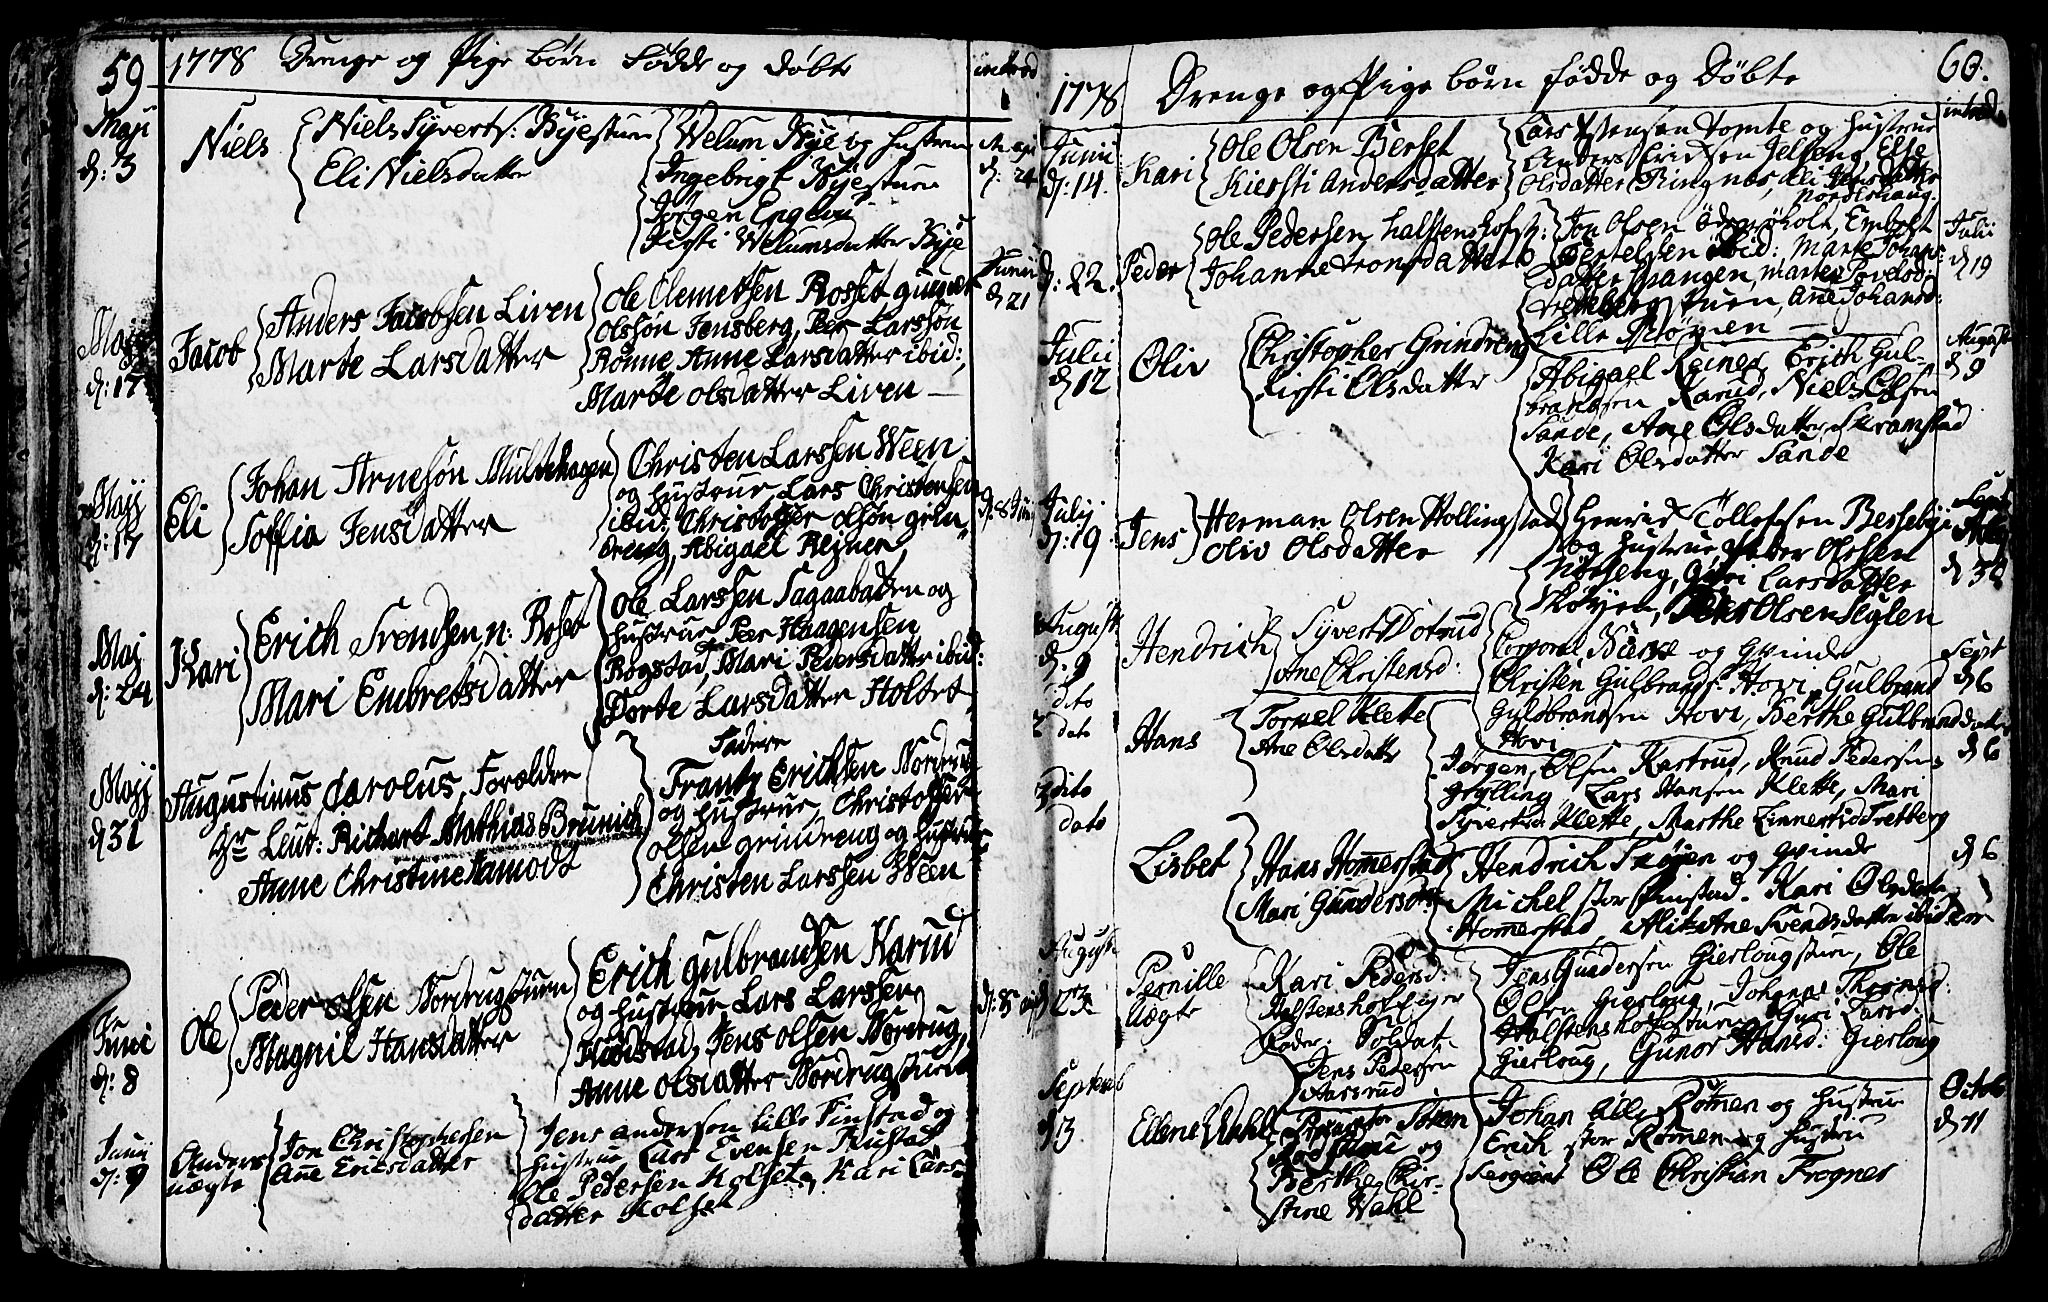 59
1778 Drenge og Pige børn Fødde og døbte
introd
Maji d: 3
Niels
Niels Syverts: Byestuen
Eli Nielsdatter
Welum Bye og hustrue
Ingebrigt Byestuen
Jørgen
Kisti Welumsdatter Bye
Maji d: 24
Maji d: 17
Jacob
Anders Jacobsen Liven
Marte Larsdatter
Ole Clemetsen Rosset
Olssøn Jensberg, Peer Larssøn
Rønne, Anne Larsdatter ibid:,
Marte olsdatter Liven
Junii d 21
Majj d: 17
Eli
Johan Arnesøn Multehagen
Soffia Jensdatter
Christen Larssen Ween
og hustrue, Lars Christensen
ibid: Christoffer olsøn grin
dreng, Abigael Rejner,
d: 8 Junij
Maj d: 24
Kari
Erich Svendsen, n: Roset
Mari Embretsdatter
Ole Larssen Sagaabatken og
hustrue Peer Haagensen
Rogstad, Mari Pedersdatter ibid:
Dorte Larsdatter Holtet
Majj d 31
Augustinus Carolus, Forældre
Hr Leut: Richart Mathias Brunich
Anne Christine Ramodt
Fadere
Frantz Erichsen Nordrug
og hustrue, Christoffer
olsen grindreng og hustrue
Christen Larssen Ween
Junii d: 8
Ole
Peder olsen Nordrugstuen
Magnil Hansdatter
Erich gulbrandsen Karud
og hustrue, Lars Larssen
Jens olsen Nordrug,
Anne olsdatter Nordrugstuen
Junij d: 9
Anders uægte
Jon Christophersen
Ane Ericsdatter
Jens andersen lille Finstad og
hustrue Lars Evensen Rustad
Ole Pedersen Kolset, Kari Lars-
datter Kolset
60.
1778 Drenge og Pige børn fødde og Døbte
introd
Junii d: 14.
Kari
Ole Olsen Berset
Kiersti Andersdatter
Lars Tostensen Tomte og hustrue
Anders Erichsen Jelseng, Else
Olsdatter Ringnes, Eli Jensdatter
Nordishaug.
d: 22.
Peder
Ole Pedersen halstenshofst:
Johanne tronsdatter
Jon Olsen ödegaarholt, Embret
Bertelsen ibid: Marte Johans-
datter Spangen, Marte
stuen, Ane Johansd:
Lille Møyen
Julii d 19
Julii d 12
Oliv
Christopher Grindreng
Kirsti Olsdatter
Abigael Reiner, Erich Gul-
brandsen Karud, Niels Olsen
Sande, Ane Olsdatter Skramstad
Kari Olsdatter Sande
August d 9
Julij d: 19
Jens
Herman Olsen Hollingstad
Oliv Olsdatter
Henrich Tollefsen Bessebye
og hustrue Peder Olssen
Nørseng, Guri Larsdatter
Skøyen, Peter Olsen Seglen
Sept d 30
August d. 9
Hendrich
Syvert Dotrud
Ane Christensd:
Corporal Bierke og Qvinde
Christen Gulbrands: Hovi, Gulbrand
Guldbrandsen Hovi, Berthe Gulbrandsdatter
Hovi
Sept d 6
dito dato
Hans
Torvel Klete
Ane Olsdatter
Jørgen Olsen Kastrud, Knud Pedersen
Grylling Lars Hansen Klette, Mari
Syvertsd: Klette, Marthe Zinnertsd Fretberg
d 6
dito dato
Lisbet
Hans Homerstad
Mari Gundersdatter
Hendrich Trøjen og qvinde
Michel stor Finstad. Kari Olsdatter
Homerstad, Alitz Ane Svendsdatter ibidem
d 6
August 23
Pernille Uægte
Kari Pedersd:
Halstenshofeyer
Fader: Soldat
Jens Pedersen
Aasrud
Jens Gundersen Gierlougstuen, Ole
Olsen Gierloug, Johanne Thronsd:
Halstenshofstuen Guri Larsd:
Gierloug, Gunor Hansd: Gierloug
Septemb d 13
Ellene Wahl
og
Berthe Chir-
stine Wahl
Johan lille Rømen og hustrue
Erich stor Rømen og hustru
Sergeant Ole Christian Frogner
Octob d 11